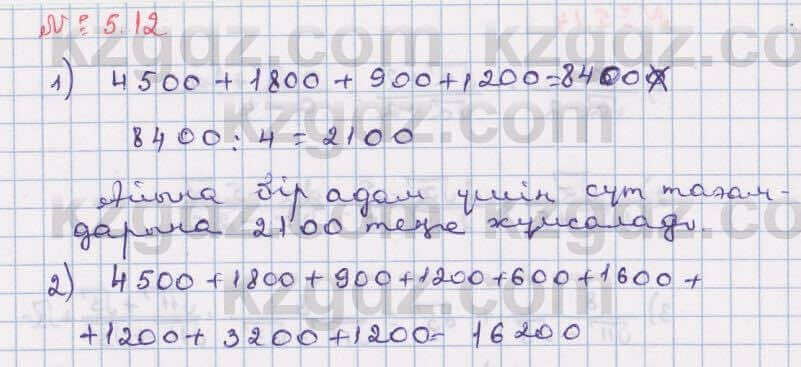 № 5.12
1) 4500 + 1800 + 900 + 1200 = 8400
8400 : 4 = 2100
Айына бір адам үшін сүт тағам-
дарына 2100 теңге жұмсалады.
2) 4500 + 1800 + 900 + 1200 + 600 + 1600 +
+ 1200 + 3200 + 1200 = 16200
kzgdz.com